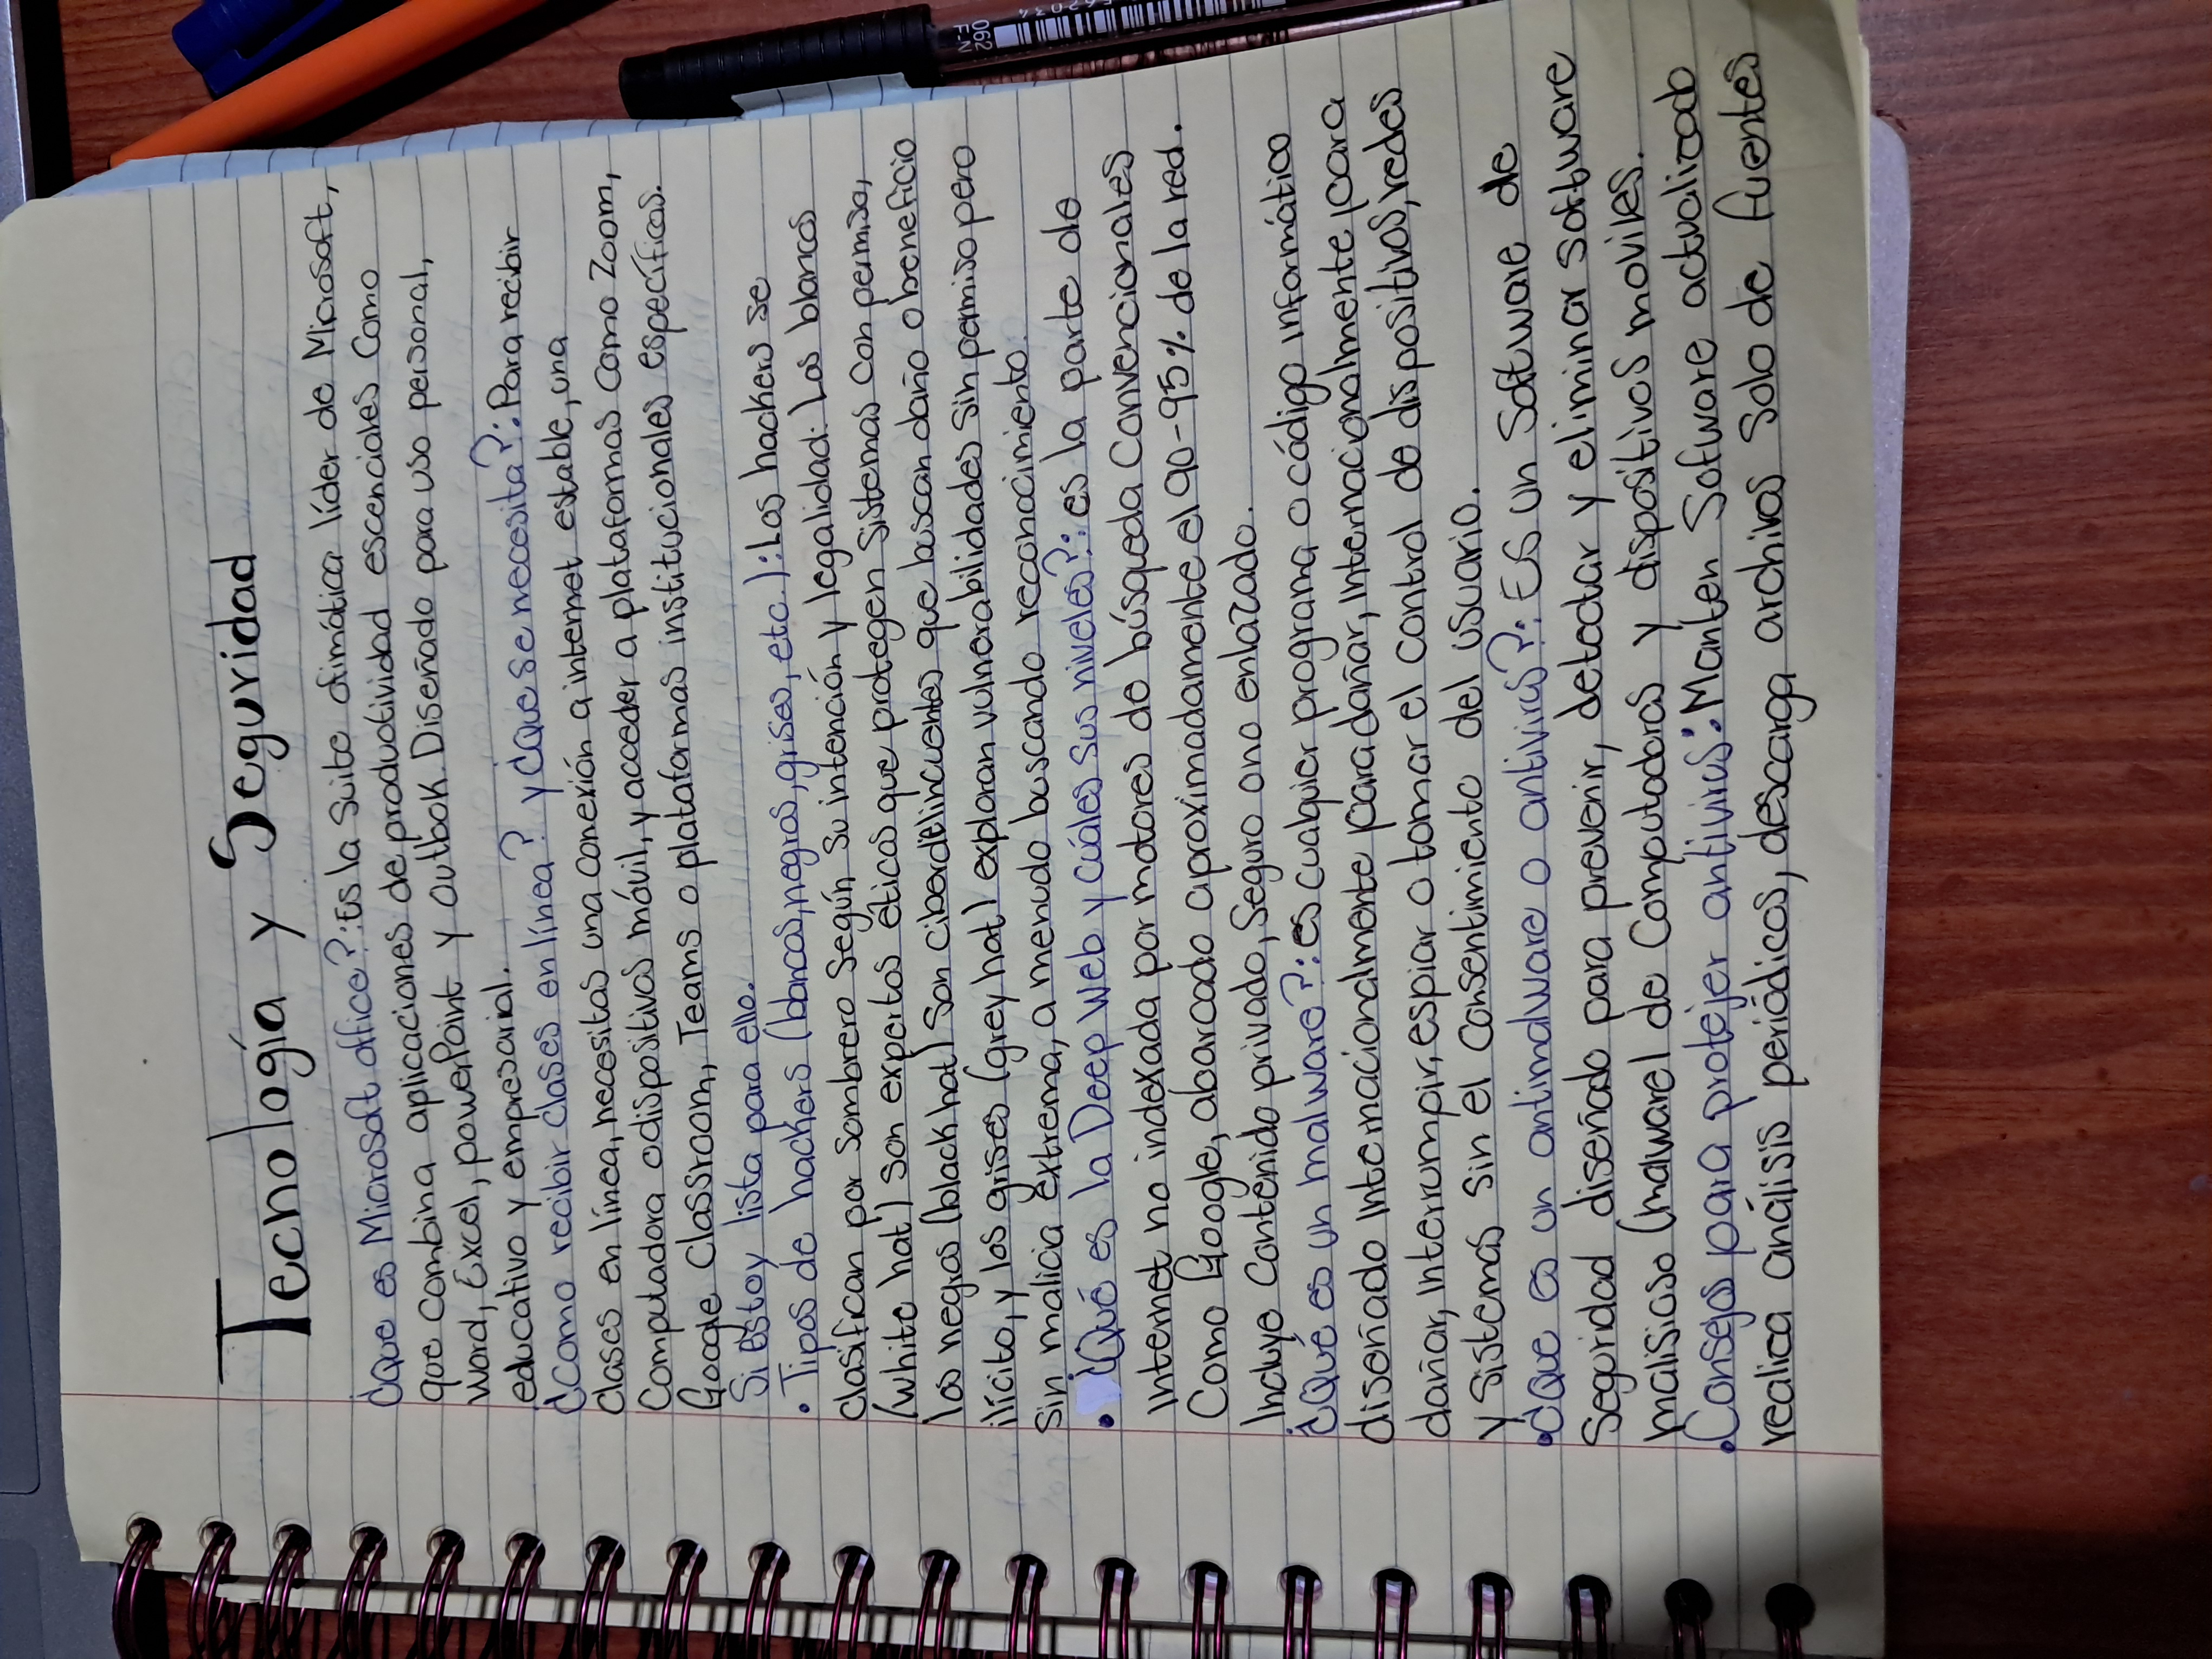 Tecnología y Seguridad
¿que es Microsoft office?: Es la Suite ofimática líder de Microsoft,
que combina aplicaciones de productividad escenciales Como
Word, Excel, powerPoint y outlook. Diseñado para uso personal,
educativo y empresarial.
¿como recibir clases en línea? y ¿que se necesita?: Para recibir
clases en línea, necesitas una conexión a internet estable, una
Computadora o dispositivo móvil, y acceder a plataformas como Zoom,
Google Classroom, Teams o plataformas institucionales específicas.
Si estoy lista para ello.
• Tipos de hackers (blancos, negros, grises, etc.): Los hackers se
clasifican por sombrero según su intención y legalidad: Los blancos
(white hat) son expertos éticos que protegen sistemas con permiso,
los negros (black hat) son ciberdelincuentes que buscan daño o beneficio
ilícito, y los grises (grey hat) exploran vulnerabilidades sin permiso pero
sin malicia extrema, a menudo buscando reconocimiento.
• ¿Qué es la Deep web y cúales sus niveles?: es la parte de
internet no indexada por motores de búsqueda convencionales
como Google, abarcado aproximadamente el 90-95% de la red.
Incluye contenido privado, seguro ono enlazado.
¿Qué es un malware?: es cualquier programa o código informático
diseñado internacionalmente para dañar, internacionalmente para
dañar, interrumpir, espiar o tomar el control de dispositivos, redes
y sistemas sin el consentimiento del usuario.
• ¿que es un antimalware o antivirus?: Es un Software de
Seguridad diseñado para prevenir, detectar y eliminar software
malisioso (malware) de Computadoras y dispositivos moviles.
• Consejos para protejer antivirus: Manten Software actualizado
realica análisis periódicos, descarga archivos Solo de fuentes
062
F-N